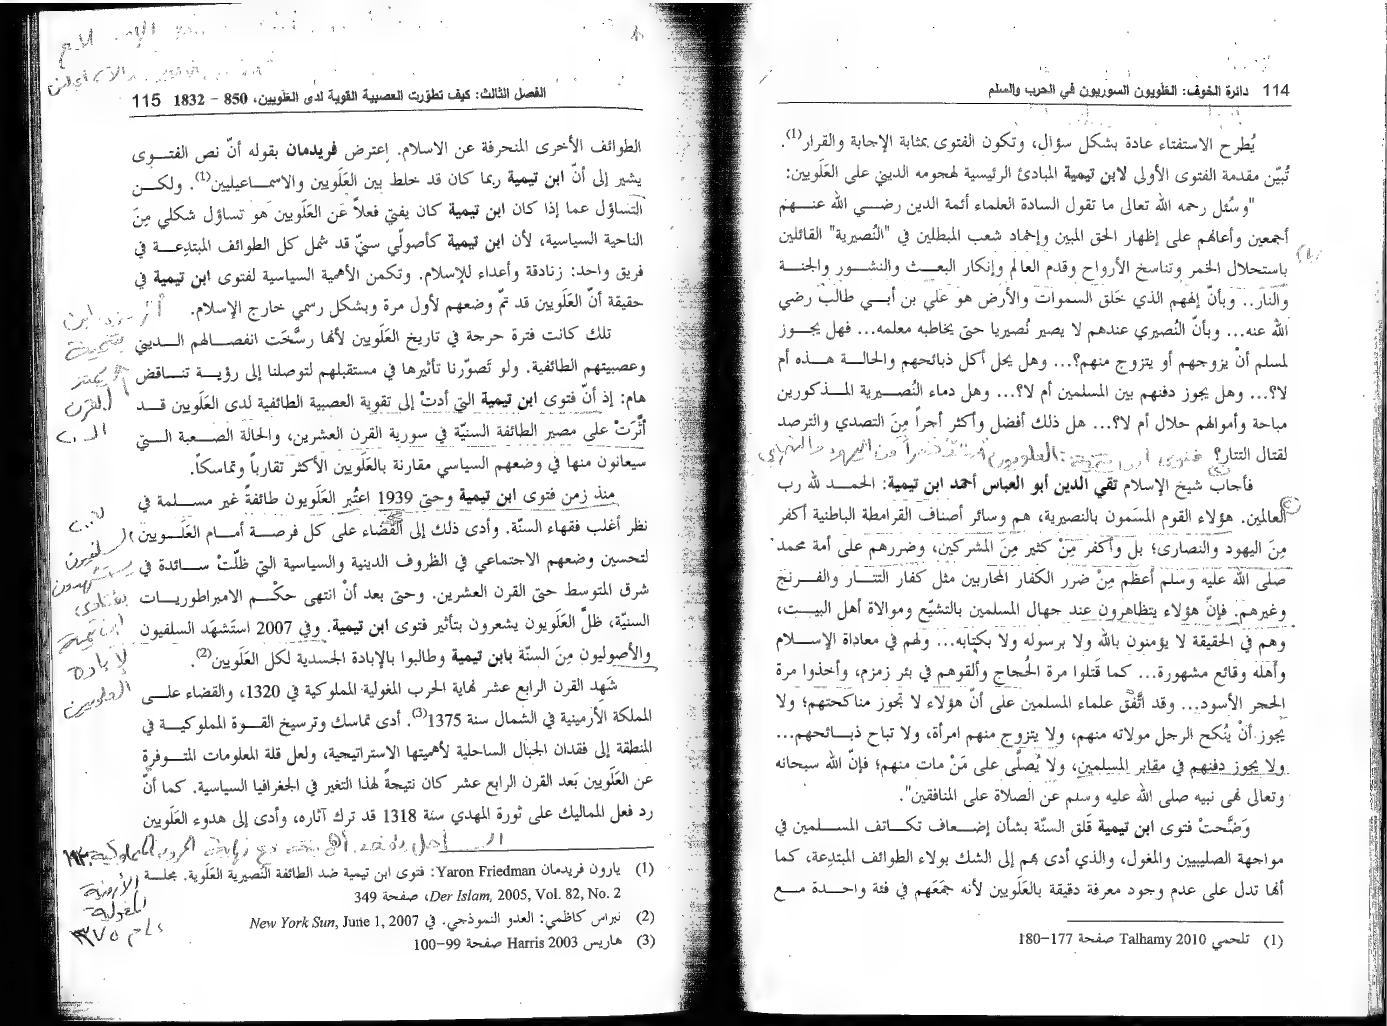 114 دائرة الخوف: العَلويون السوريون في الحرب والسلم
يُطرح الاستفتاء عادة بشكل سؤال، وتكون الفتوى بمثابة الإجابة والقرار(1).
تُبيّن مقدمة الفتوى الأولى لابن تيمية المبادئ الرئيسية لهجومه الديني على العَلَويين:
"وسُئل رحمه الله تعالى ما تقول السادة العلماء أئمة الدين رضي الله عنهم
أجمعين وأعانهم على إظهار الحق المبين وإخماد شعب المبطلين في "النُصيرية" القائلين
باستحلال الخمر وتناسخ الأرواح وقدم العالم وإنكار البعث والنشور والجنة
والنار.. وبأنّ إلههم الذي خَلق السموات والأرض هو علي بن أبي طالب رضي
الله عنه... وبأنّ النُصيري عندهم لا يصير نُصيريا حتى يخاطبه معلمه... فهل يجوز
لمسلم أنْ يزوجهم أو يتزوج منهم؟... وهل يحل أكل ذبائحهم والحالة هذه أم
لا؟... وهل يجوز دفنهم بين المسلمين أم لا؟... وهل دماء النُصيرية المذكورين
مباحة وأموالهم حلال أم لا؟... هل ذلك أفضل وأكثر أجراً مِنَ التصدي والترصد
لقتال التتار؟
فأجابَ شيخ الإسلام تقي الدين أبو العباس أحمد ابن تيمية: الحمد لله رب
العالمين. هؤلاء القوم المسَمون بالنصيرية، هم وسائر أصناف القرامطة الباطنية أكفر
مِنَ اليهود والنصارى؛ بل وأكفر مِنْ كثير مِنَ المشركين، وضررهم على أمة محمد
صلى الله عليه وسلم أعظم مِنْ ضرر الكفار المحاربين مثل كفار التتار والفرنج
وغيرهم. فإنّ هؤلاء يتظاهرون عند جهال المسلمين بالتشيّع وموالاة أهل البيت،
وهم في الحقيقة لا يؤمنون بالله ولا برسوله ولا بكتابه... ولهم في معاداة الإسلام
وأهله وقائع مشهورة... كما قَتلوا مرة الحُجاج وألقوهم في بئر زمزم، وأخذوا مرة
الحجر الأسود... وقد اتَّفقَ علماء المسلمين على أنّ هؤلاء لا تجوز مناكحتهم؛ ولا
يجوز أنْ يُنكح الرجل مولاته منهم، ولا يتزوج منهم امرأة، ولا تباح ذبائحهم...
ولا يجوز دفنهم في مقابر المسلمين، ولا يُصلَّى على مَنْ مات منهم؛ فإنّ الله سبحانه
وتعالى نهى نبيه صلى الله عليه وسلم عن الصلاة على المنافقين".
وَضَّحتْ فتوى ابن تيمية قَلق السنّة بشأن إضعاف تكاتف المسلمين في
مواجهة الصليبيين والمغول، والذي أدى بهم إلى الشك بولاء الطوائف المبتدِعة، كما
أنها تدل على عدم وجود معرفة دقيقة بالعَلَويين لأنه جمَعَهم في فئة واحدة مع
(1) تلحمي Talhamy 2010 صفحة 177-180
الفصل الثالث: كيف تطوّرت العصبية القوية لدى العَلَويين، 850 – 1832 115
الطوائف الأخرى المنحرفة عن الاسلام. إعترض فريدمان بقوله أنّ نص الفتوى
يشير إلى أنّ ابن تيمية ربما كان قد خلط بين العَلَويين والاسماعيليين(1). ولكن
التساؤل عما إذا كان ابن تيمية كان يفتي فعلاً عَن العَلَويين هو تساؤل شكلي مِنَ
الناحية السياسية، لأن ابن تيمية كأصولّي سنيّ قد شمل كل الطوائف المبتدِعة في
فريق واحد: زنادقة وأعداء للإسلام. وتكمن الأهمية السياسية لفتوى ابن تيمية في
حقيقة أنّ العَلَويين قد تمّ وضعهم لأول مرة وبشكل رسمي خارج الإسلام.
تلك كانت فترة حرجة في تاريخ العَلَويين لأنها رسَّخَت انفصالهم الديني
وعصبيتهم الطائفية. ولو تَصوّرنا تأثيرها في مستقبلهم لتوصلنا إلى رؤية تناقض
هام: إذ أنّ فتوى ابن تيمية التي أدتْ إلى تقوية العصبية الطائفية لدى العَلَويين قد
أثَّرَتْ على مصير الطائفة السنيّة في سورية القرن العشرين، والحالة الصعبة التي
سيعانون منها في وضعهم السياسي مقارنة بالعَلَويين الأكثر تقارباً وتماسكاً.
منذ زمن فتوى ابن تيمية وحتى 1939 اعتُبر العَلَويون طائفةً غير مسلمة في
نظر أغلب فقهاء السنّة. وأدى ذلك إلى القضاء على كل فرصة أمام العَلَويين
لتحسين وضعهم الاجتماعي في الظروف الدينية والسياسية التي ظلّتْ سائدة في
شرق المتوسط حتى القرن العشرين. وحتى بعد أنْ انتهى حكْم الامبراطوريات
السنيّة، ظلَّ العَلَويون يشعرون بتأثير فتوى ابن تيمية. وفي 2007 استَشهَد السلفيون
والأصوليون مِنَ السنّة بابن تيمية وطالبوا بالإبادة الجسدية لكل العَلَويين(2).
شَهد القرن الرابع عشر نهاية الحرب المغولية المملوكية في 1320، والقضاء على
المملكة الأرمينية في الشمال سنة 1375(3). أدى تماسك وترسيخ القوة المملوكية في
المنطقة إلى فقدان الجبال الساحلية لأهميتها الاستراتيجية، ولعل قلة المعلومات المتوفرة
عن العَلَويين بَعد القرن الرابع عشر كان نتيجةً لهذا التغير في الجغرافيا السياسية. كما أنّ
رد فعل المماليك على ثورة المهدي سنة 1318 قد ترك آثاره، وأدى إلى هدوء العَلَويين
(1) يارون فريدمان Yaron Friedman: فتوى ابن تيمية ضد الطائفة النُصيرية العَلَوية. مجلة
Der Islam, 2005, Vol. 82, No. 2، صفحة 349
(2) نبراس كاظمي: العدو النموذجي. في New York Sun, June 1, 2007
(3) هاريس Harris 2003 صفحة 99-100